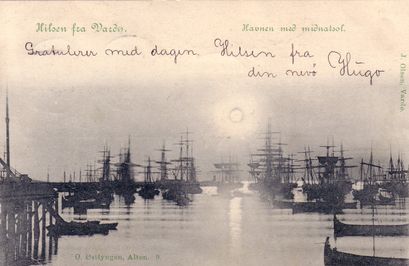 Hilsen fra Vardö.
Havnen med midnatsol.
Gratulerer med dagen. Hilsen fra
din nevö Hugo
J. Olsen, Vardö.
O. Östlyngen, Alten. 9.